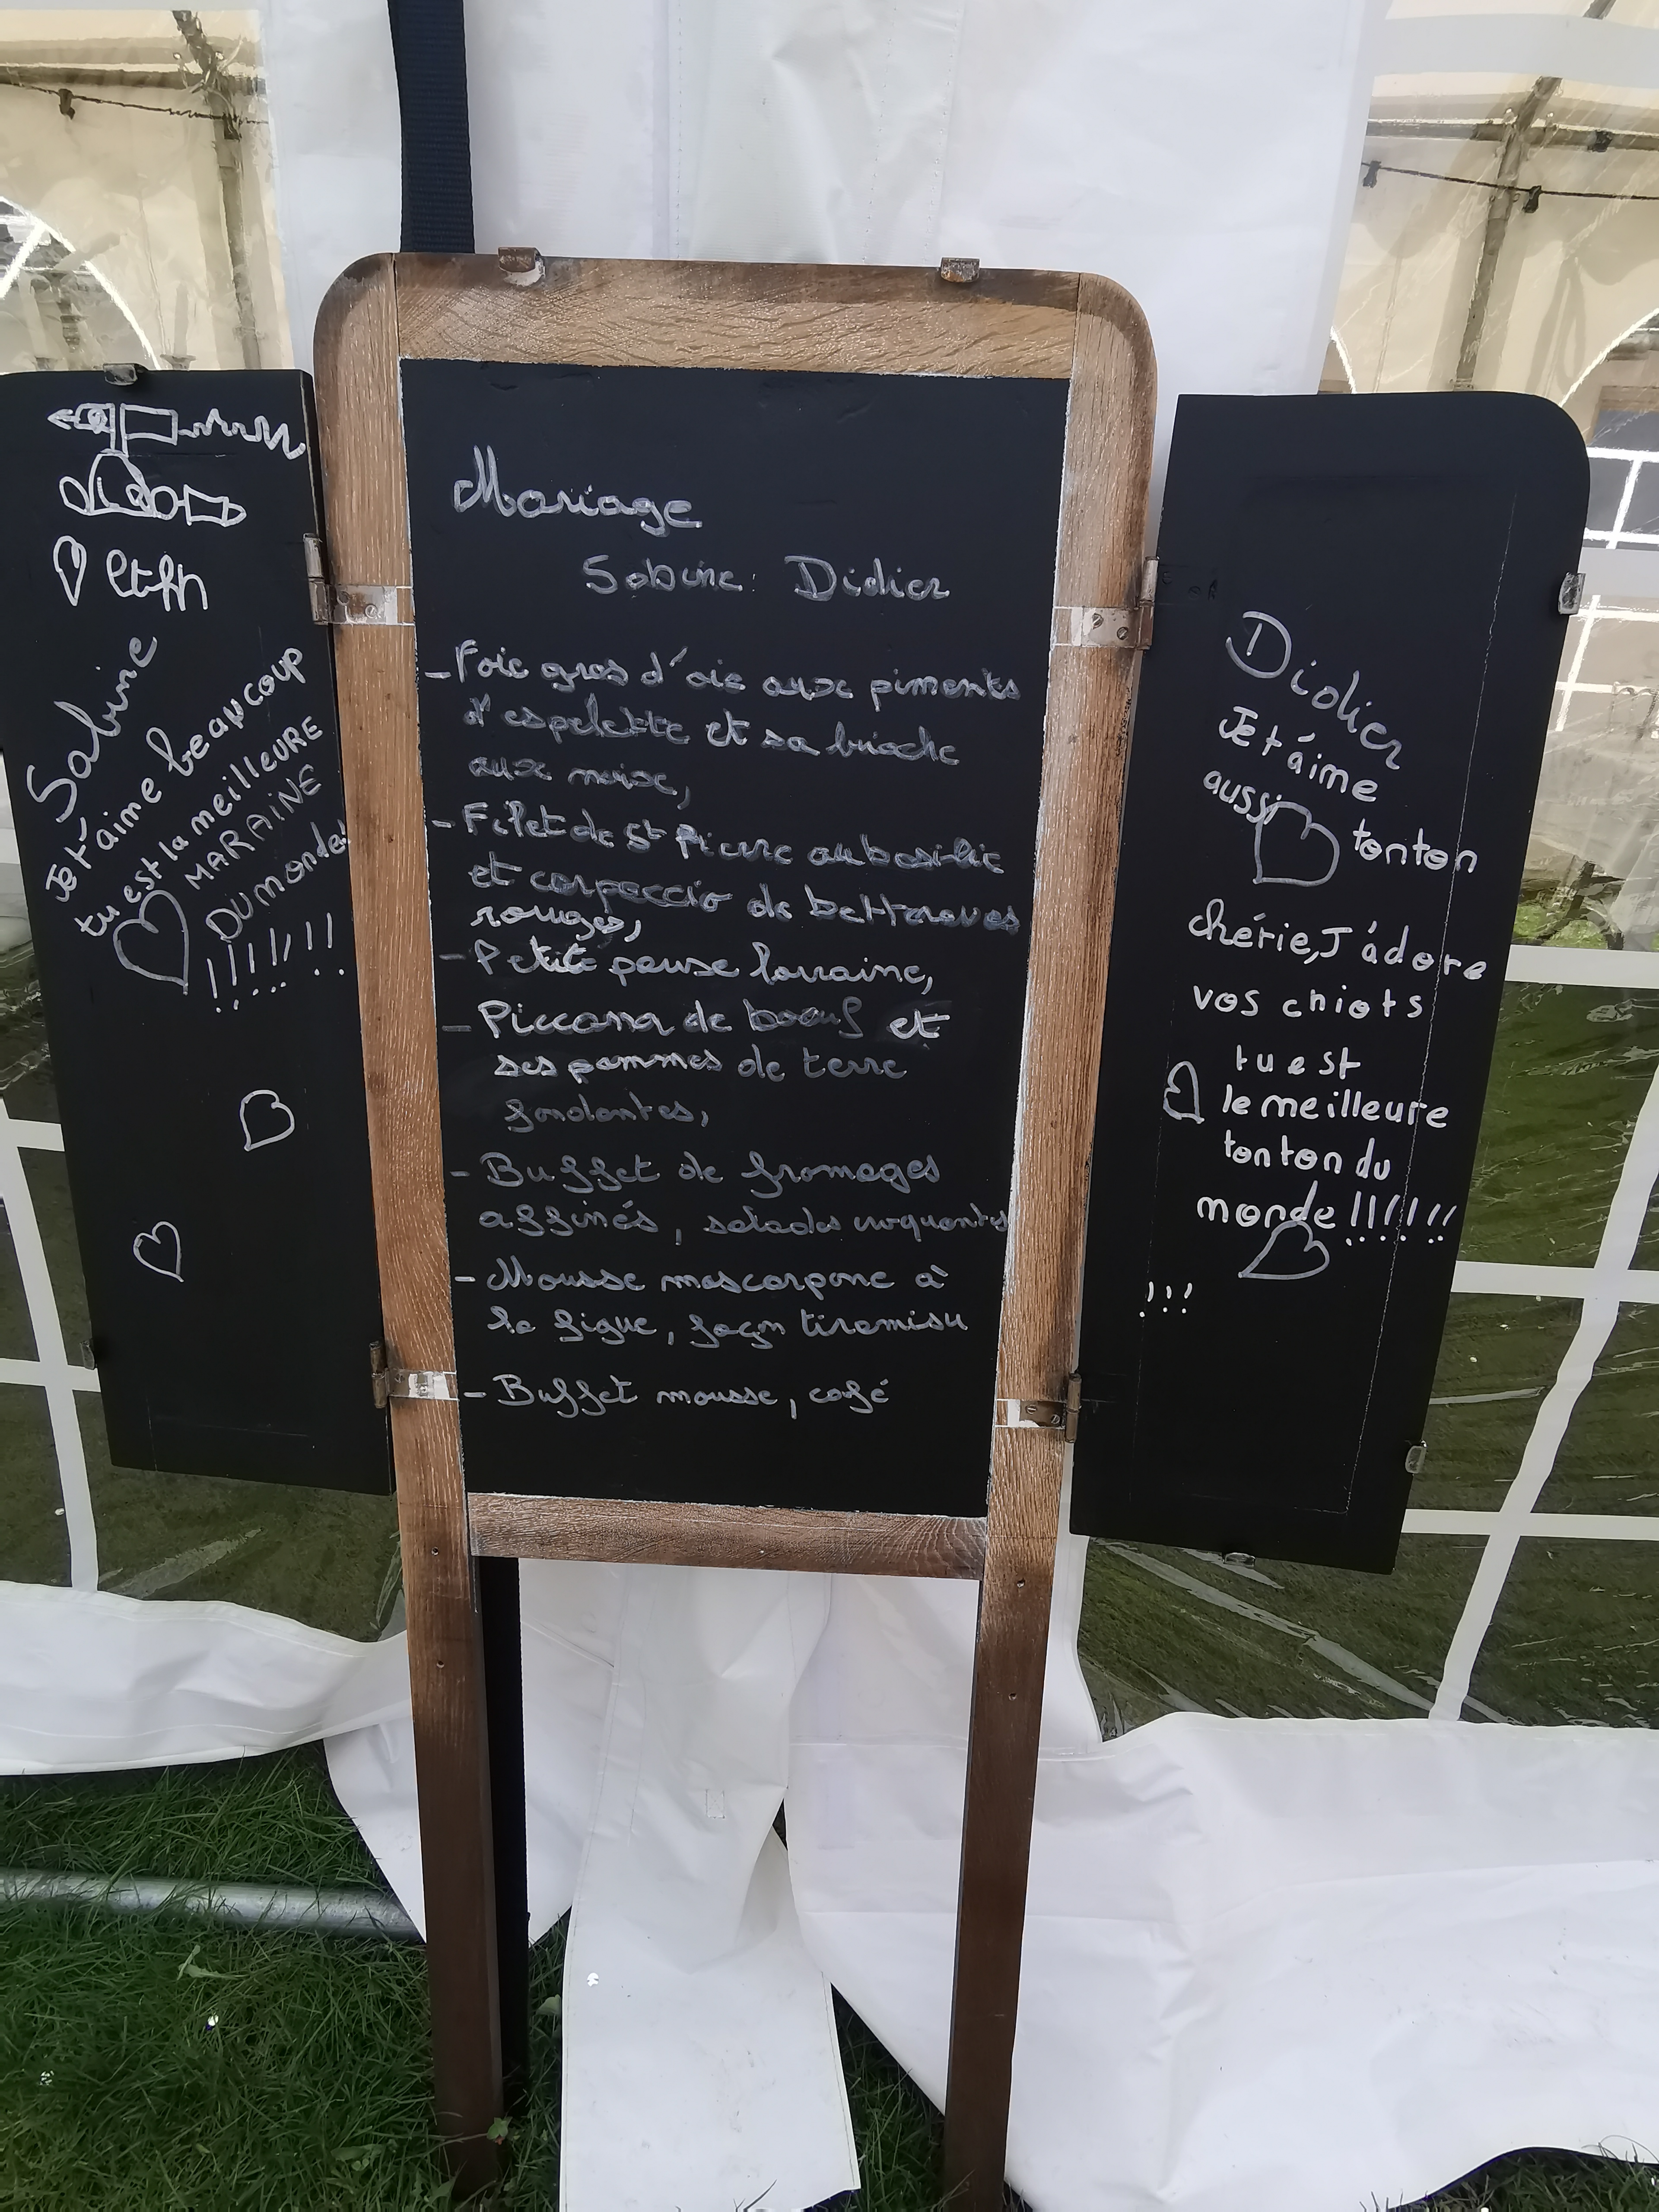 Sabine
Je t'aime beaucoup
tu est la meilleure
MARRAINE
DU monde!
!!!!!!!
Mariage
Sabine : Didier
- Foie gras d'oie aux piments
d'espelette et sa brioche
aux noix,
- Filet de St Pierre au basilic
et carpaccio de betteraves
rouges,
- Petite pause lorraine,
- Piccana de boeuf et
ses pommes de terre
fondantes,
- Buffet de fromages
affinés, salades croquantes
- Mousse mascarpone à
la figue, façon tiramisu
- Buffet mousse, café
Didier
Je t'aime
aussi
tonton
chérie, J'adore
vos chiots
tu est
le meilleure
tonton du
monde !!!!!!!
!!!